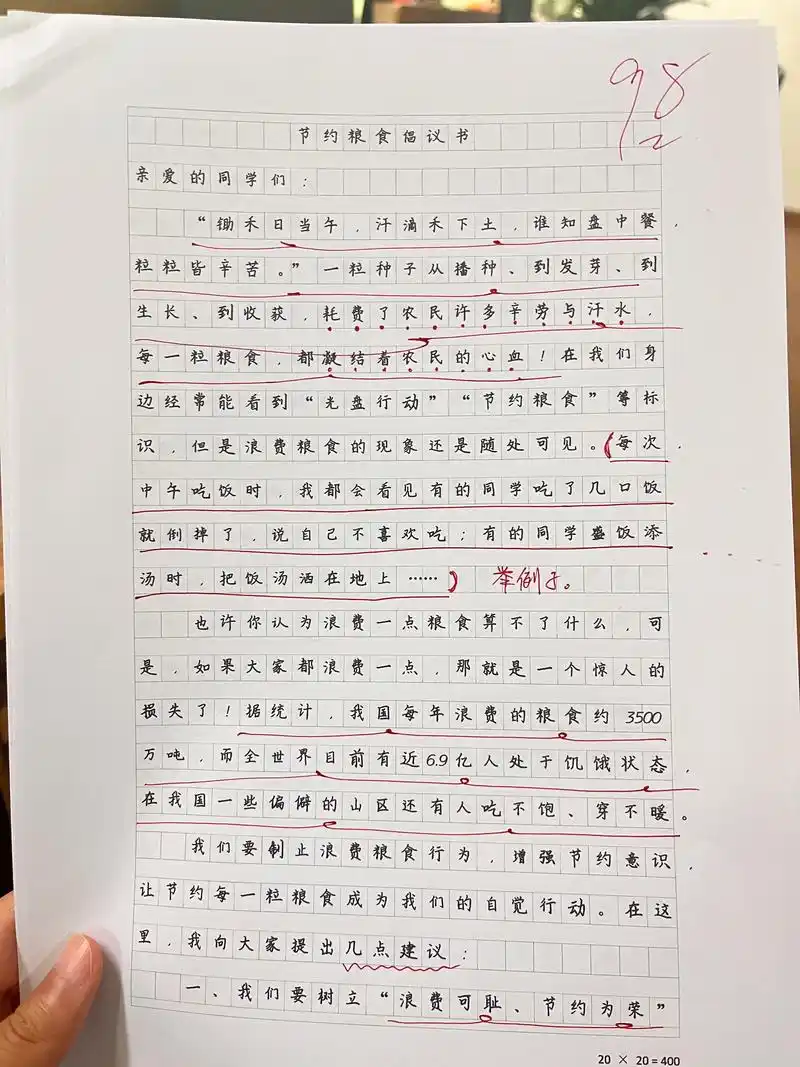 98
节约粮食倡议书
亲爱的同学们：
“锄禾日当午，汗滴禾下土，谁知盘中餐，
粒粒皆辛苦。”一粒种子从播种、到发芽、到
生长、到收获，耗费了农民许多辛劳与汗水，
每一粒粮食，都凝结着农民的心血！在我们身
边经常能看到“光盘行动”“节约粮食”等标
识，但是浪费粮食的现象还是随处可见。（每次，
中午吃饭时，我都会看见有的同学吃了几口饭
就倒掉了，说自己不喜欢吃；有的同学盛饭添
汤时，把饭汤洒在地上……） 举例子。
也许你认为浪费一点粮食算不了什么，可
是，如果大家都浪费一点，那就是一个惊人的
损失了！据统计，我国每年浪费的粮食约3500
万吨，而全世界目前有近6.9亿人处于饥饿状态，
在我国一些偏僻的山区还有人吃不饱、穿不暖。
我们要制止浪费粮食行为，增强节约意识，
让节约每一粒粮食成为我们的自觉行动。在这
里，我向大家提出几点建议：
一、我们要树立“浪费可耻、节约为荣”
20 × 20 = 400